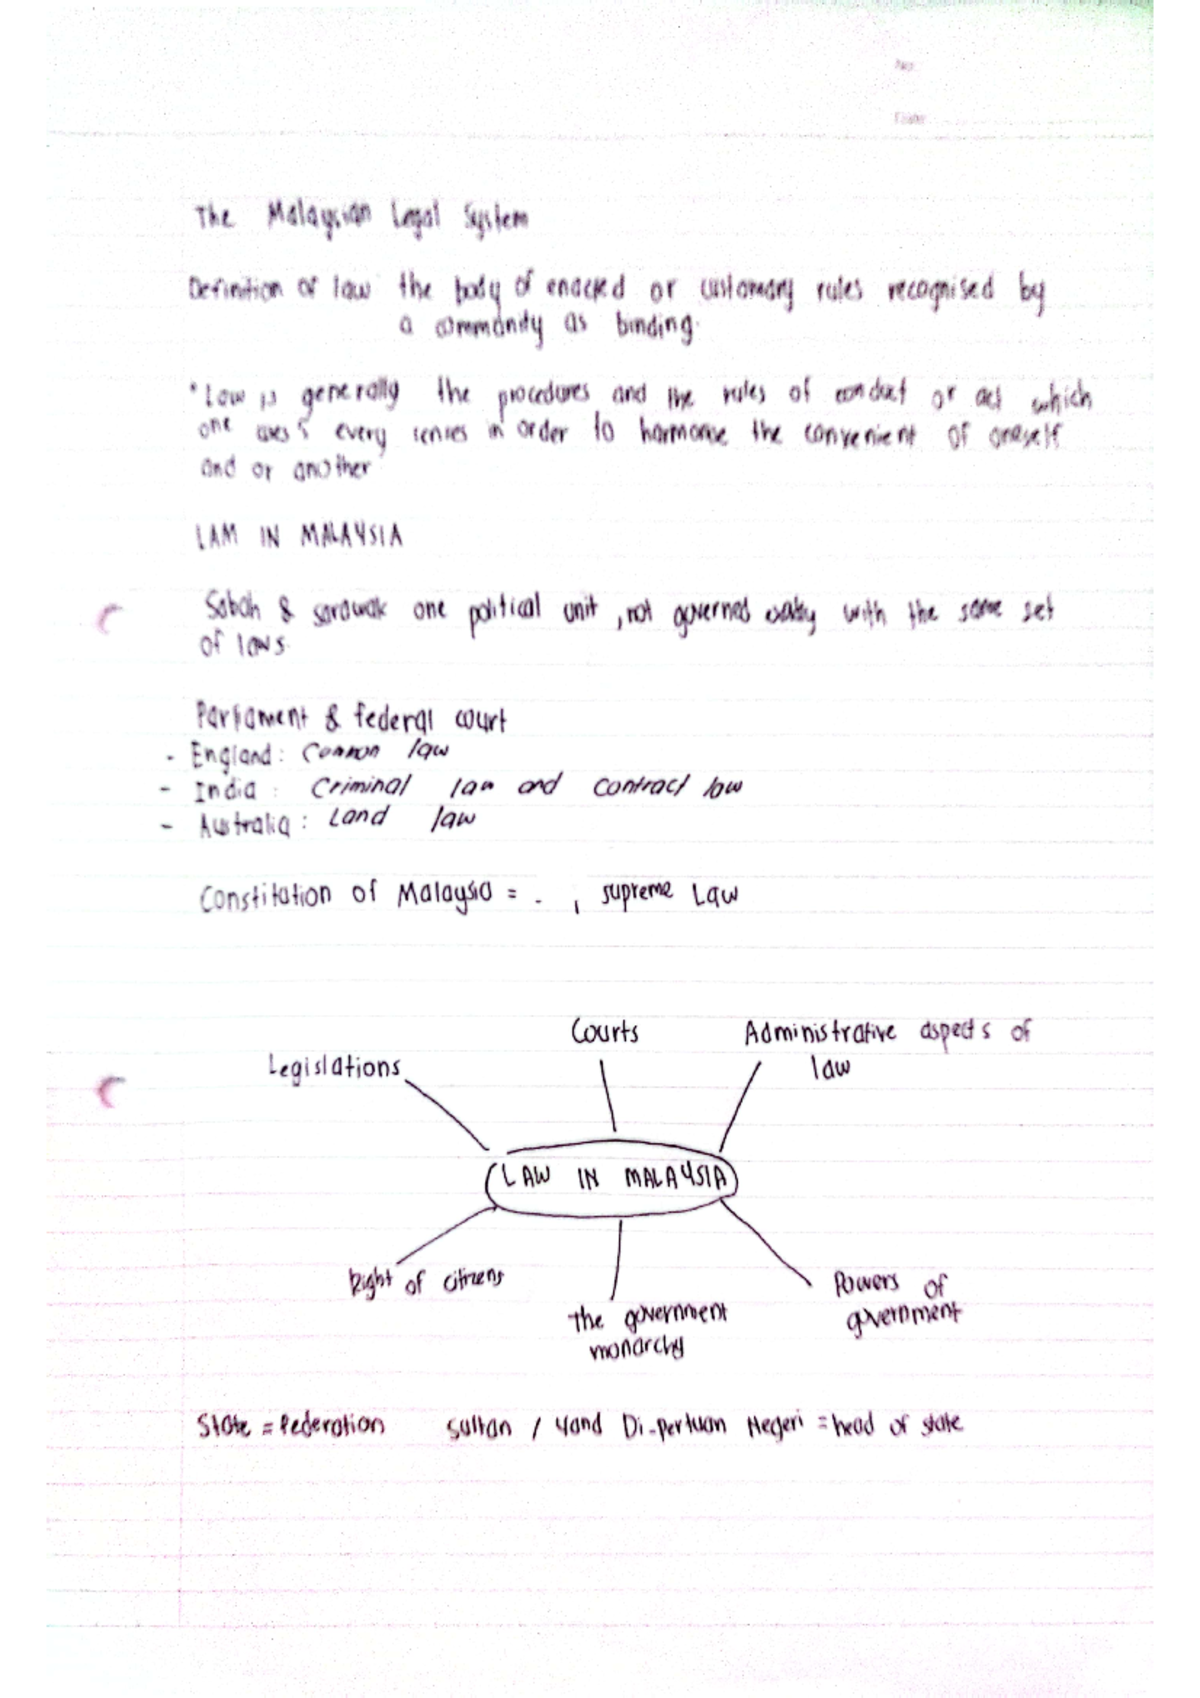 The Malaysian Legal System
Definition of law the body of enacted or customary rules recognised by
a community as binding.
"Law is generally the procedures and the rules of conduct or act which
one uses every senses in order to harmonise the convenient of oneself
and or another
LAM IN MALAYSIA
Sabah & Sarawak one political unit, not governed with the same set
of laws.
Parliament & federal court
- England: Common law
- India: Criminal law and contract law
- Australia: Land law
Constitation of Malaysia = - , supreme Law
Courts
Administrative aspects of
law
Legislations
LAW IN MALAYSIA
Right of citizens
the government
monarchy
Powers of
government
State = federation Sultan / Yand Di-pertuan Negeri = head of state